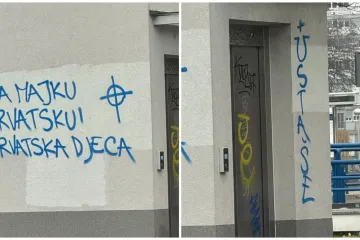 A MAJKU
RVATSKU!
RVATSKA DJECA
+USTAŠE